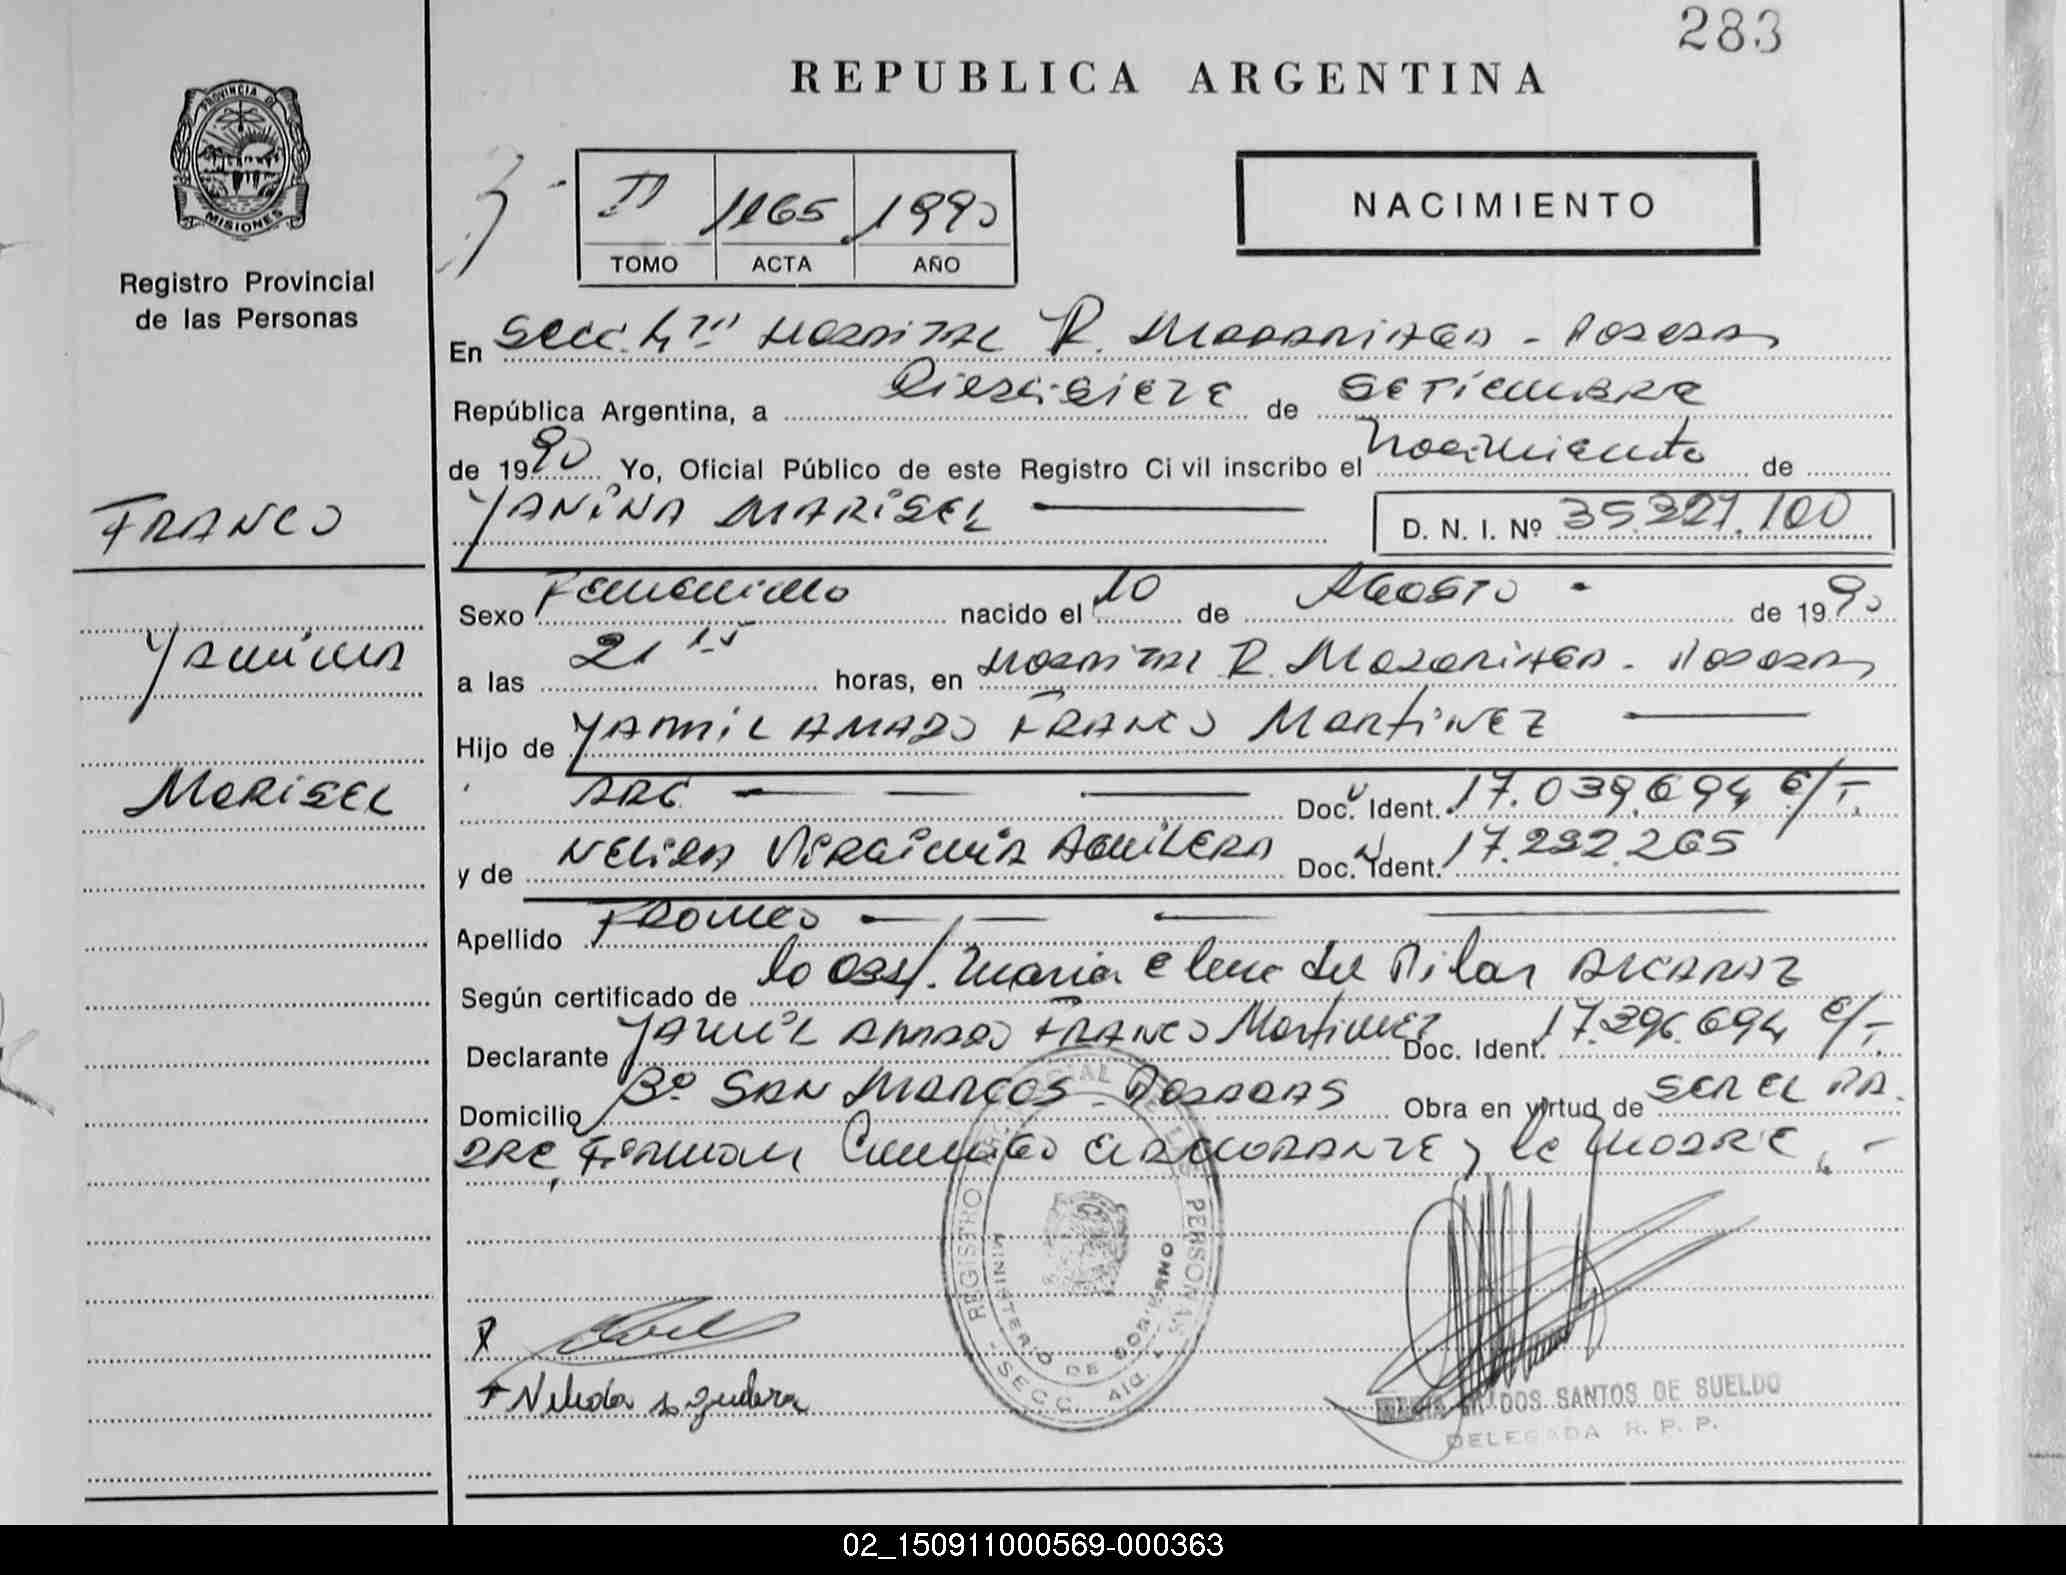 283
REPUBLICA ARGENTINA
PROVINCIA DE
MISIONES
Registro Provincial
de las Personas
II 1165 1990
TOMO ACTA AÑO
NACIMIENTO
En Secc. 4ta Hospital R. Madariaga - Posadas
República Argentina, a Diesisiete de Setiembre
de 1990 Yo, Oficial Público de este Registro Civil inscribo el Nacimiento de
FRANCO
YANINA MARISEL
D. N. I. Nº 35.327.100
Sexo Femenino nacido el 10 de Agosto de 1990
Yanina
a las 21 15 horas, en Hospital R. Madariaga - Posadas
Hijo de YAMIL AMADO FRANCO MARTINEZ
Marisel
ARG Doc. Ident. 17.039.694 C/T.
y de NELIDA VIRGINIA AGUILERA Doc. Ident. 17.292.265
Apellido FRANCO
Según certificado de la Obst. Maria Elena del Pilar ALCARAZ
Declarante YAMIL AMADO FRANCO Martinez Doc. Ident. 17.396.694 C/T.
Domicilio Bº SAN MARCOS - POSADAS Obra en virtud de SER EL PA
DRE, Firman Conmigo el DECLARANTE y la MADRE. -
REGISTRO PERSONAS
MINISTERIO DE GOBIERNO
SECC. 4ta.
Nelida Aguilera
DOS SANTOS DE SUELDO
DELEGADA R. P. P.
02_150911000569-000363